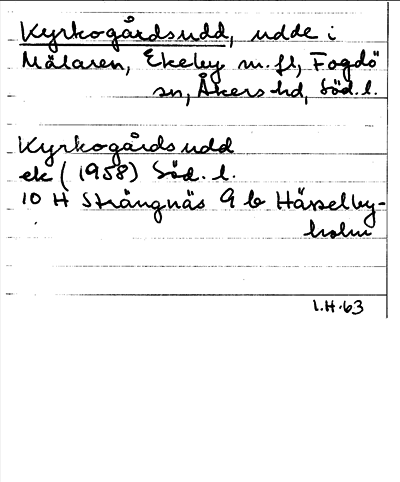 Kyrkogårdsudd, udde i
Mälaren, Ekeby m.fl, Fogdö
sn, Åkers hd, Söd. l.
Kyrkogårdsudd
ek (1958) Söd. l.
10 H Strängnäs 9 b Hässelby-
holm
I.H.63